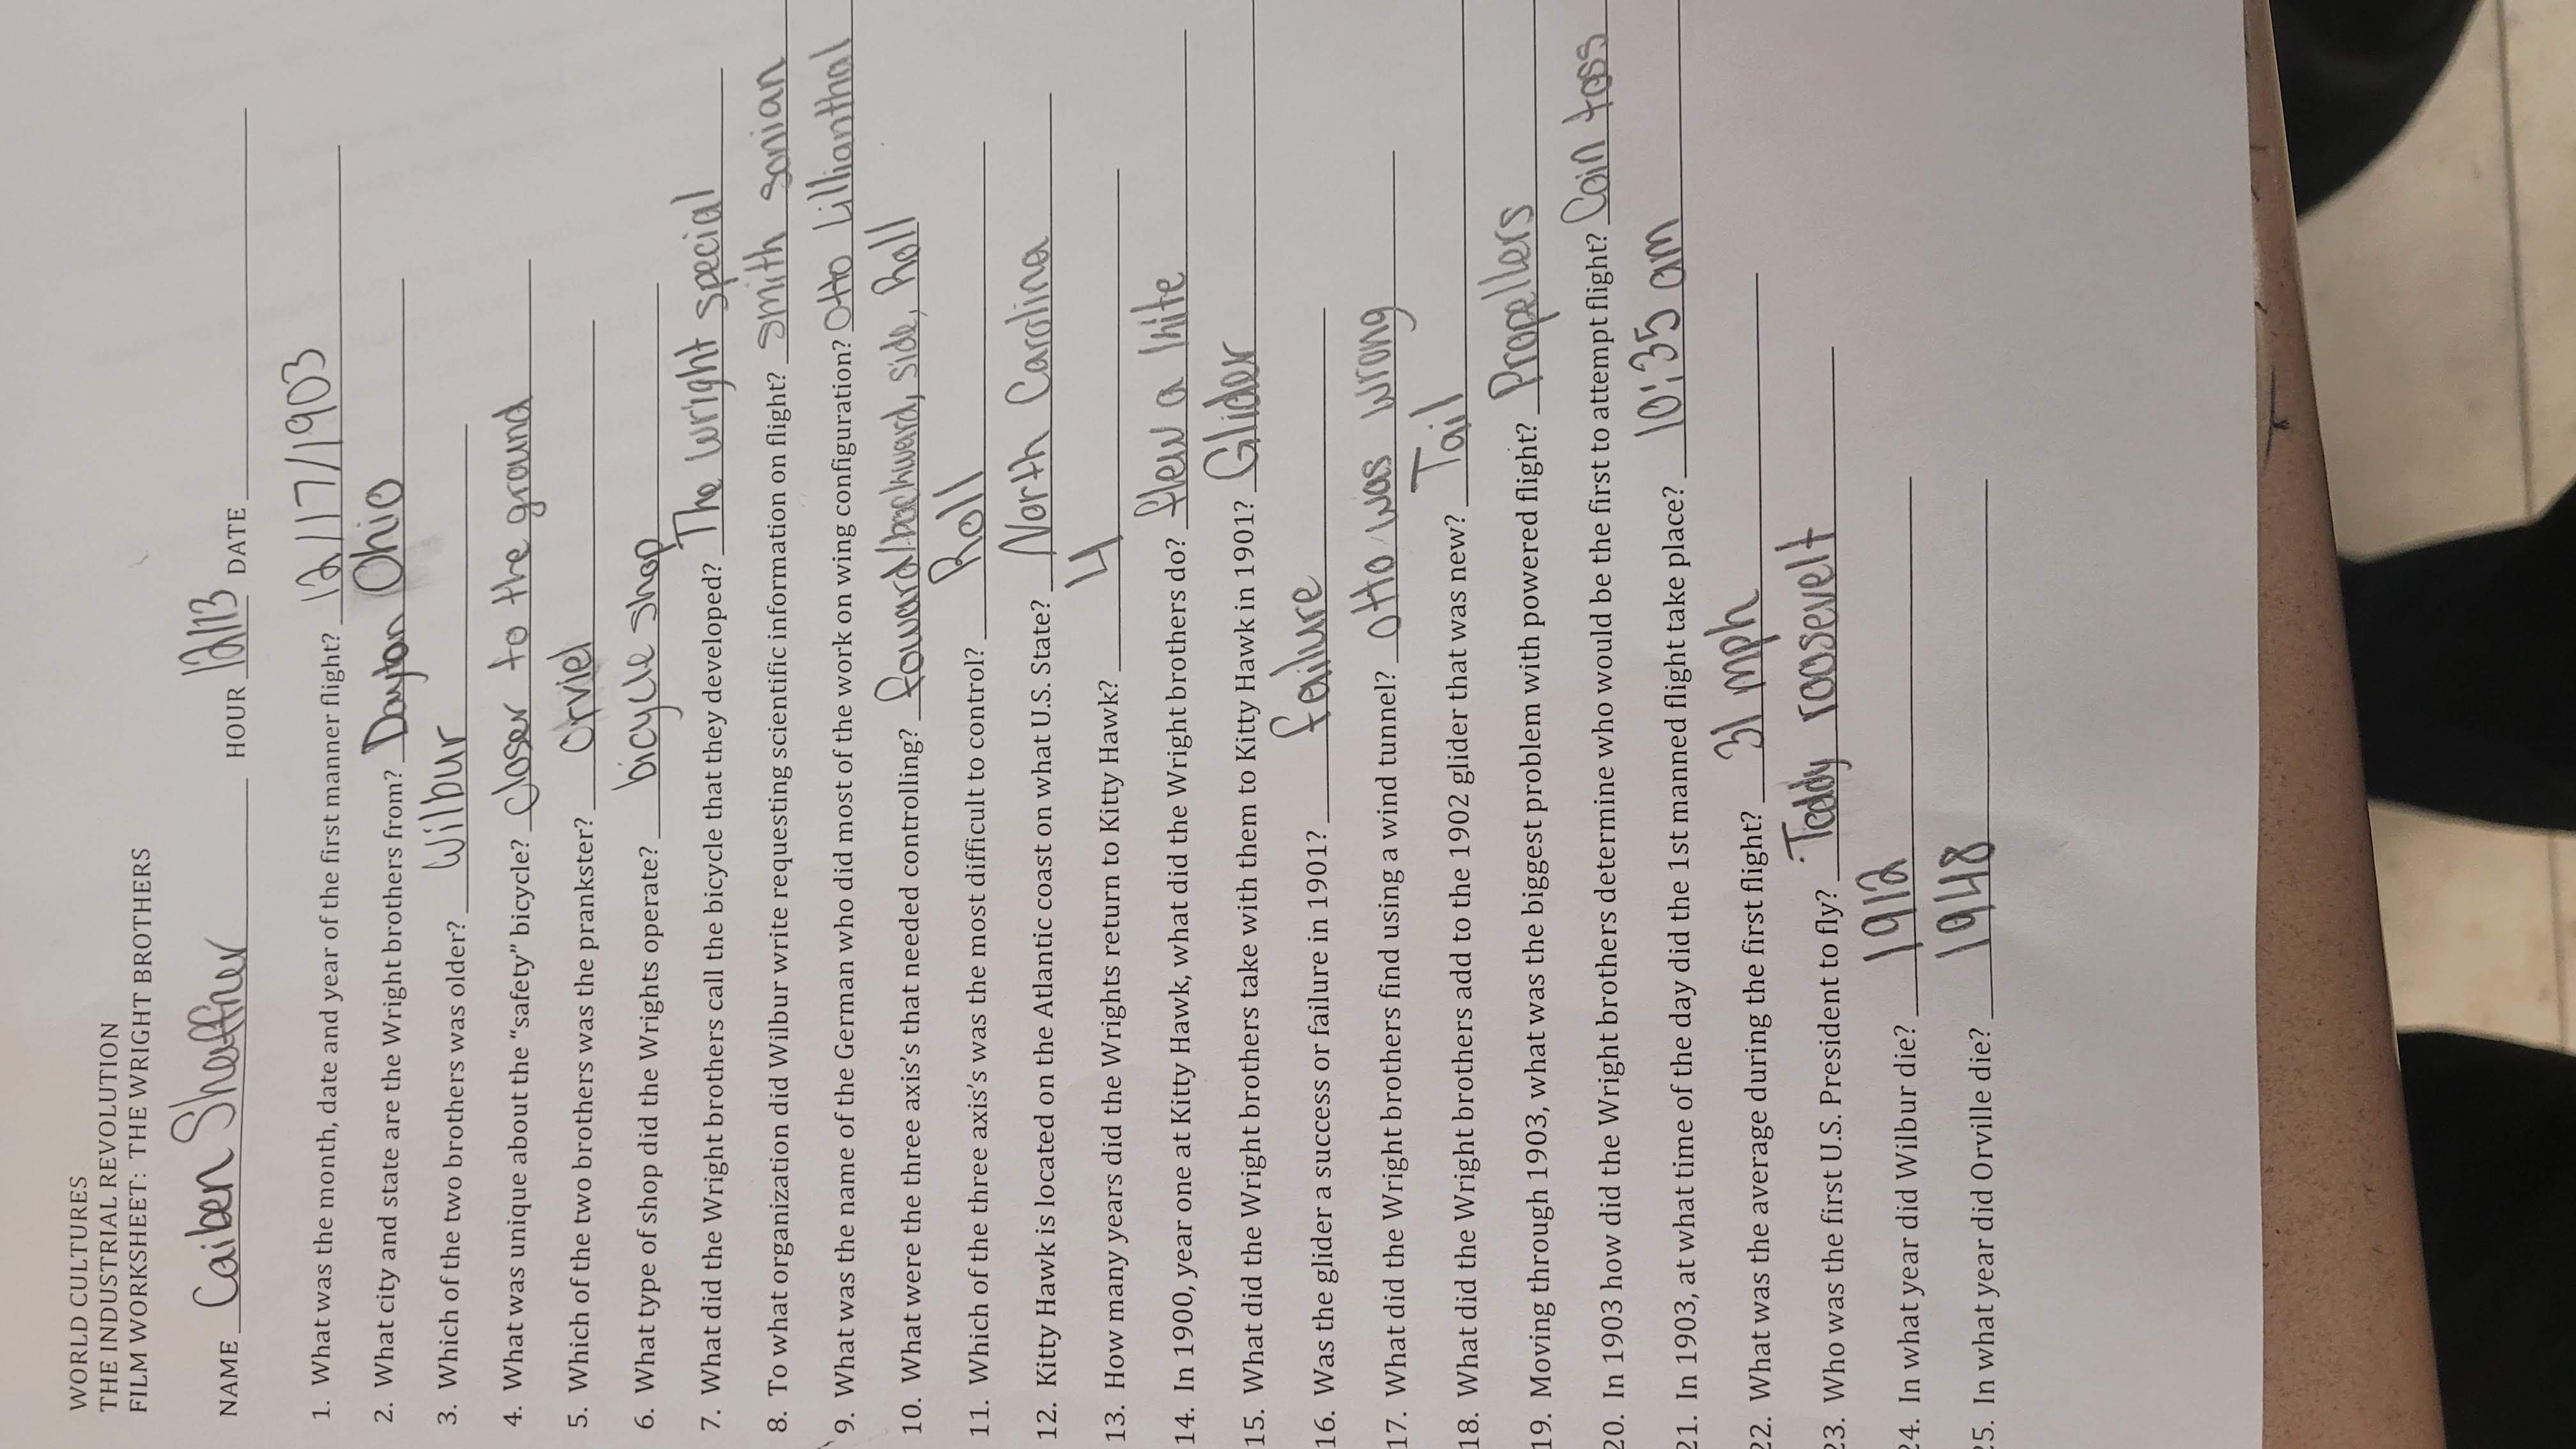 WORLD CULTURES
THE INDUSTRIAL REVOLUTION
FILM WORKSHEET: THE WRIGHT BROTHERS
NAME Caiben Sheffner HOUR 12/13 DATE
1. What was the month, date and year of the first manner flight? 12/17/1903
2. What city and state are the Wright brothers from? Dayton Ohio
3. Which of the two brothers was older? Wilbur
4. What was unique about the “safety” bicycle? Closer to the ground
5. Which of the two brothers was the prankster? Orviel
6. What type of shop did the Wrights operate? bicycle shop
7. What did the Wright brothers call the bicycle that they developed? The Wright special
8. To what organization did Wilbur write requesting scientific information on flight? Smith sonian
9. What was the name of the German who did most of the work on wing configuration? Otto Lillianthal
10. What were the three axis's that needed controlling? foward/backward, side, Roll
11. Which of the three axis's was the most difficult to control? Roll
12. Kitty Hawk is located on the Atlantic coast on what U.S. State? North Carolina
13. How many years did the Wrights return to Kitty Hawk? 4
14. In 1900, year one at Kitty Hawk, what did the Wright brothers do? flew a kite
15. What did the Wright brothers take with them to Kitty Hawk in 1901? Glider
16. Was the glider a success or failure in 1901? failure
17. What did the Wright brothers find using a wind tunnel? Otto was wrong
18. What did the Wright brothers add to the 1902 glider that was new? Tail
19. Moving through 1903, what was the biggest problem with powered flight? Propellers
20. In 1903 how did the Wright brothers determine who would be the first to attempt flight? Coin toss
21. In 1903, at what time of the day did the 1st manned flight take place? 10:35 am
22. What was the average during the first flight? 31 mph
23. Who was the first U.S. President to fly? Teddy roosevelt
24. In what year did Wilbur die? 1912
25. In what year did Orville die? 1948